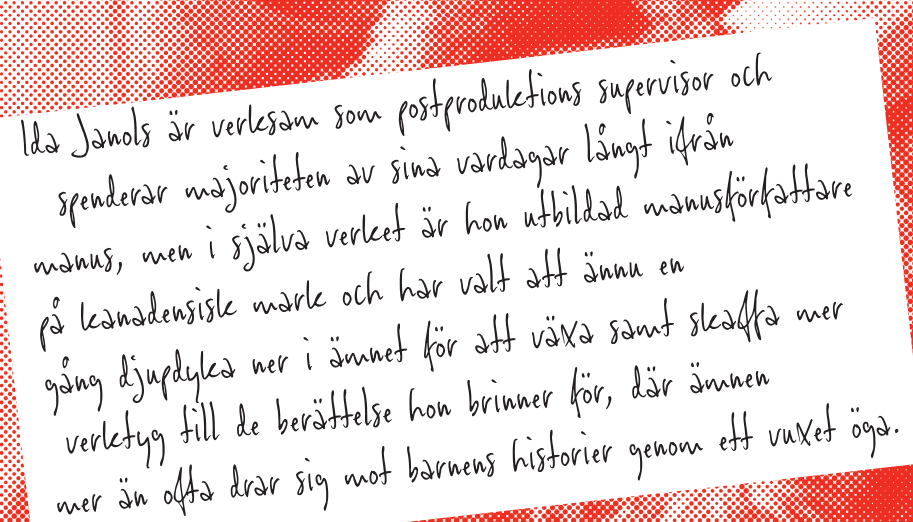 Ida Janols är verksam som postproduktions supervisor och
spenderar majoriteten av sina vardagar långt ifrån
manus, men i själva verket är hon utbildad manusförfattare
på kanadensisk mark och har valt att ännu en
gång djupdyka ner i ämnet för att växa samt skaffa mer
verktyg till de berättelse hon brinner för, där ämnen
mer än ofta drar sig mot barnens historier genom ett vuxet öga.